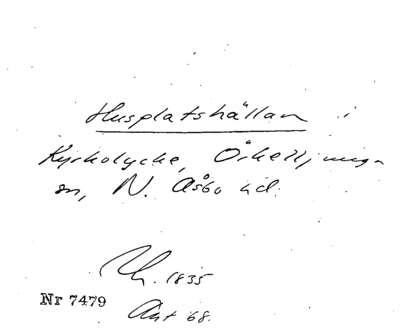 Husplatshällan i
Kyrkolycke, Örkellljunga
sn, N. Åsbo hd.
1835
Nr 7479
Ant 68.